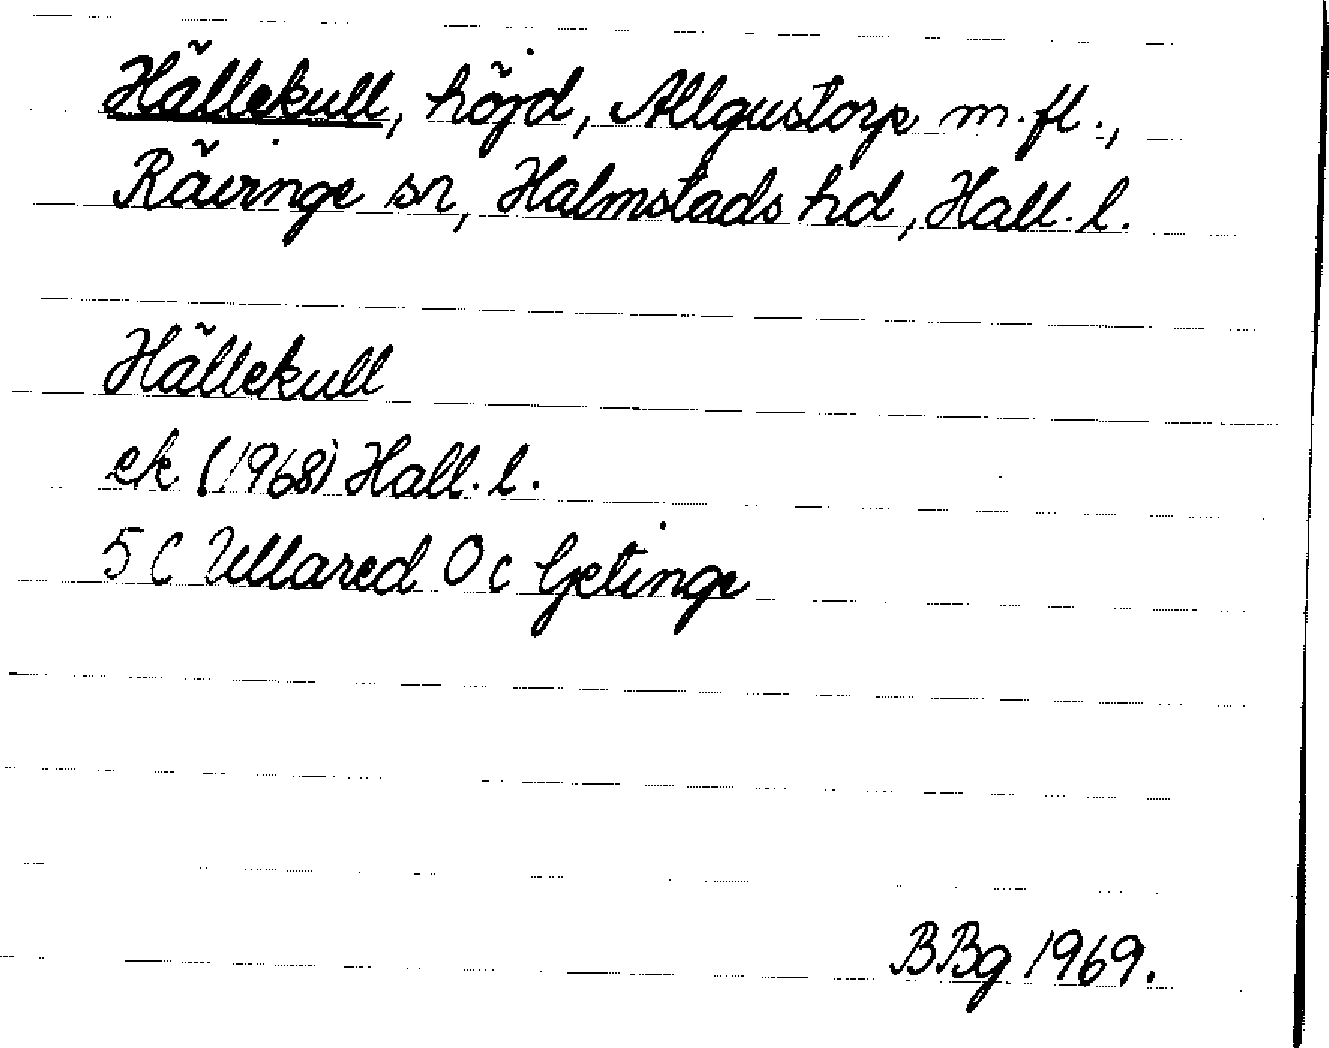 Hällekull, höjd, Allgustorp m.fl.,
Rävinge sn, Halmstads hd, Hall. l.
Hällekull
ek (1968) Hall. l.
5 C Ullared 0 c Getinge
BBg 1969.